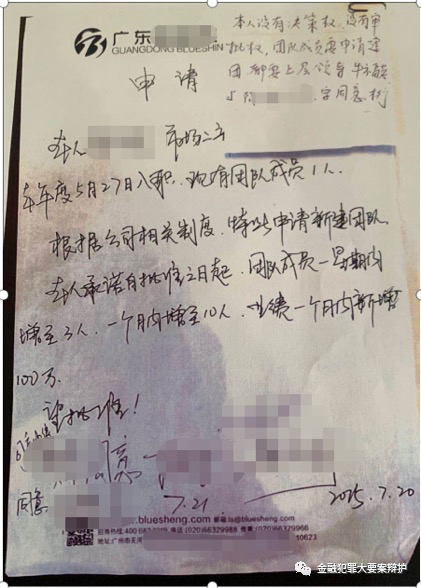 广东
GUANGDONG BLUESHIN
本人没有决策权,没有审
批权,团队成员要申请建
团都要上层领导
字同意
申请
本人 市场二部
本年度5月27日入职,现有团队成员1人。
根据公司相关制度,特此申请新建团队。
本人承诺自批准之日起,团队成员一星期内
增至3人,一个月内增至10人,业绩一个月内新增
100万。
望批准!
同意
同意
7.21
2015.7.20
www.bluesheng.com
(020)66329988
(020)66329966
10623
金融犯罪大要案辩护